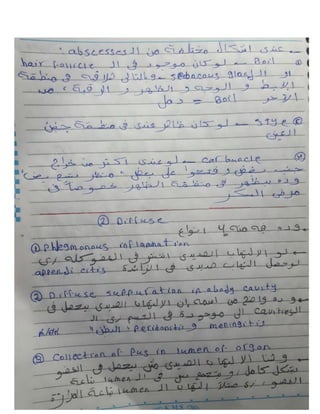 ← عندى اشكال مختلفة من الـ abscesses :
① Boil → لو كان موجود فى الـ hair follicle
او الـ sebaceous gland → وبالتالى تلاقيه فى منطقة
الابط و الوجه و الظهر و الرقبة ، من
الآخر Boil = دمل
② Stye → لو كان ظاهر عندى فى منطقة جفن
العين
③ carbuncle → لو عندى اكتر من خراج
جنب بعض و فتحوا على بعض
وده بيظهر فى منطقة الظهر خصوصاً فى
مرضى السكر
② Diffuse
← وده فيه منه 4 انواع
① Phlegmonous inflammation
← لو الالتهاب الصديدى انتشر فى العضو كله زى
لو حصل التهاب صديدى فى الزائدة appendicitis
② Diffuse suppuration in a body cavity
← و ده واضح من اسمه إن الالتهاب الصديدى بيحصل فى
الـ cavities الى موجودة فى الجسم زى الـ
meningitis و Peritonitis "البطن"
③ Collection of Pus in lumen of organ
← و هنا الالتهاب الصديدى مش بيحصل فى العضو
بشكل كامل و بتتجمع فى الـ lumen بتاعة
العضو ، زى مثلاً التهاب الـ lumen بتاعة المرارة